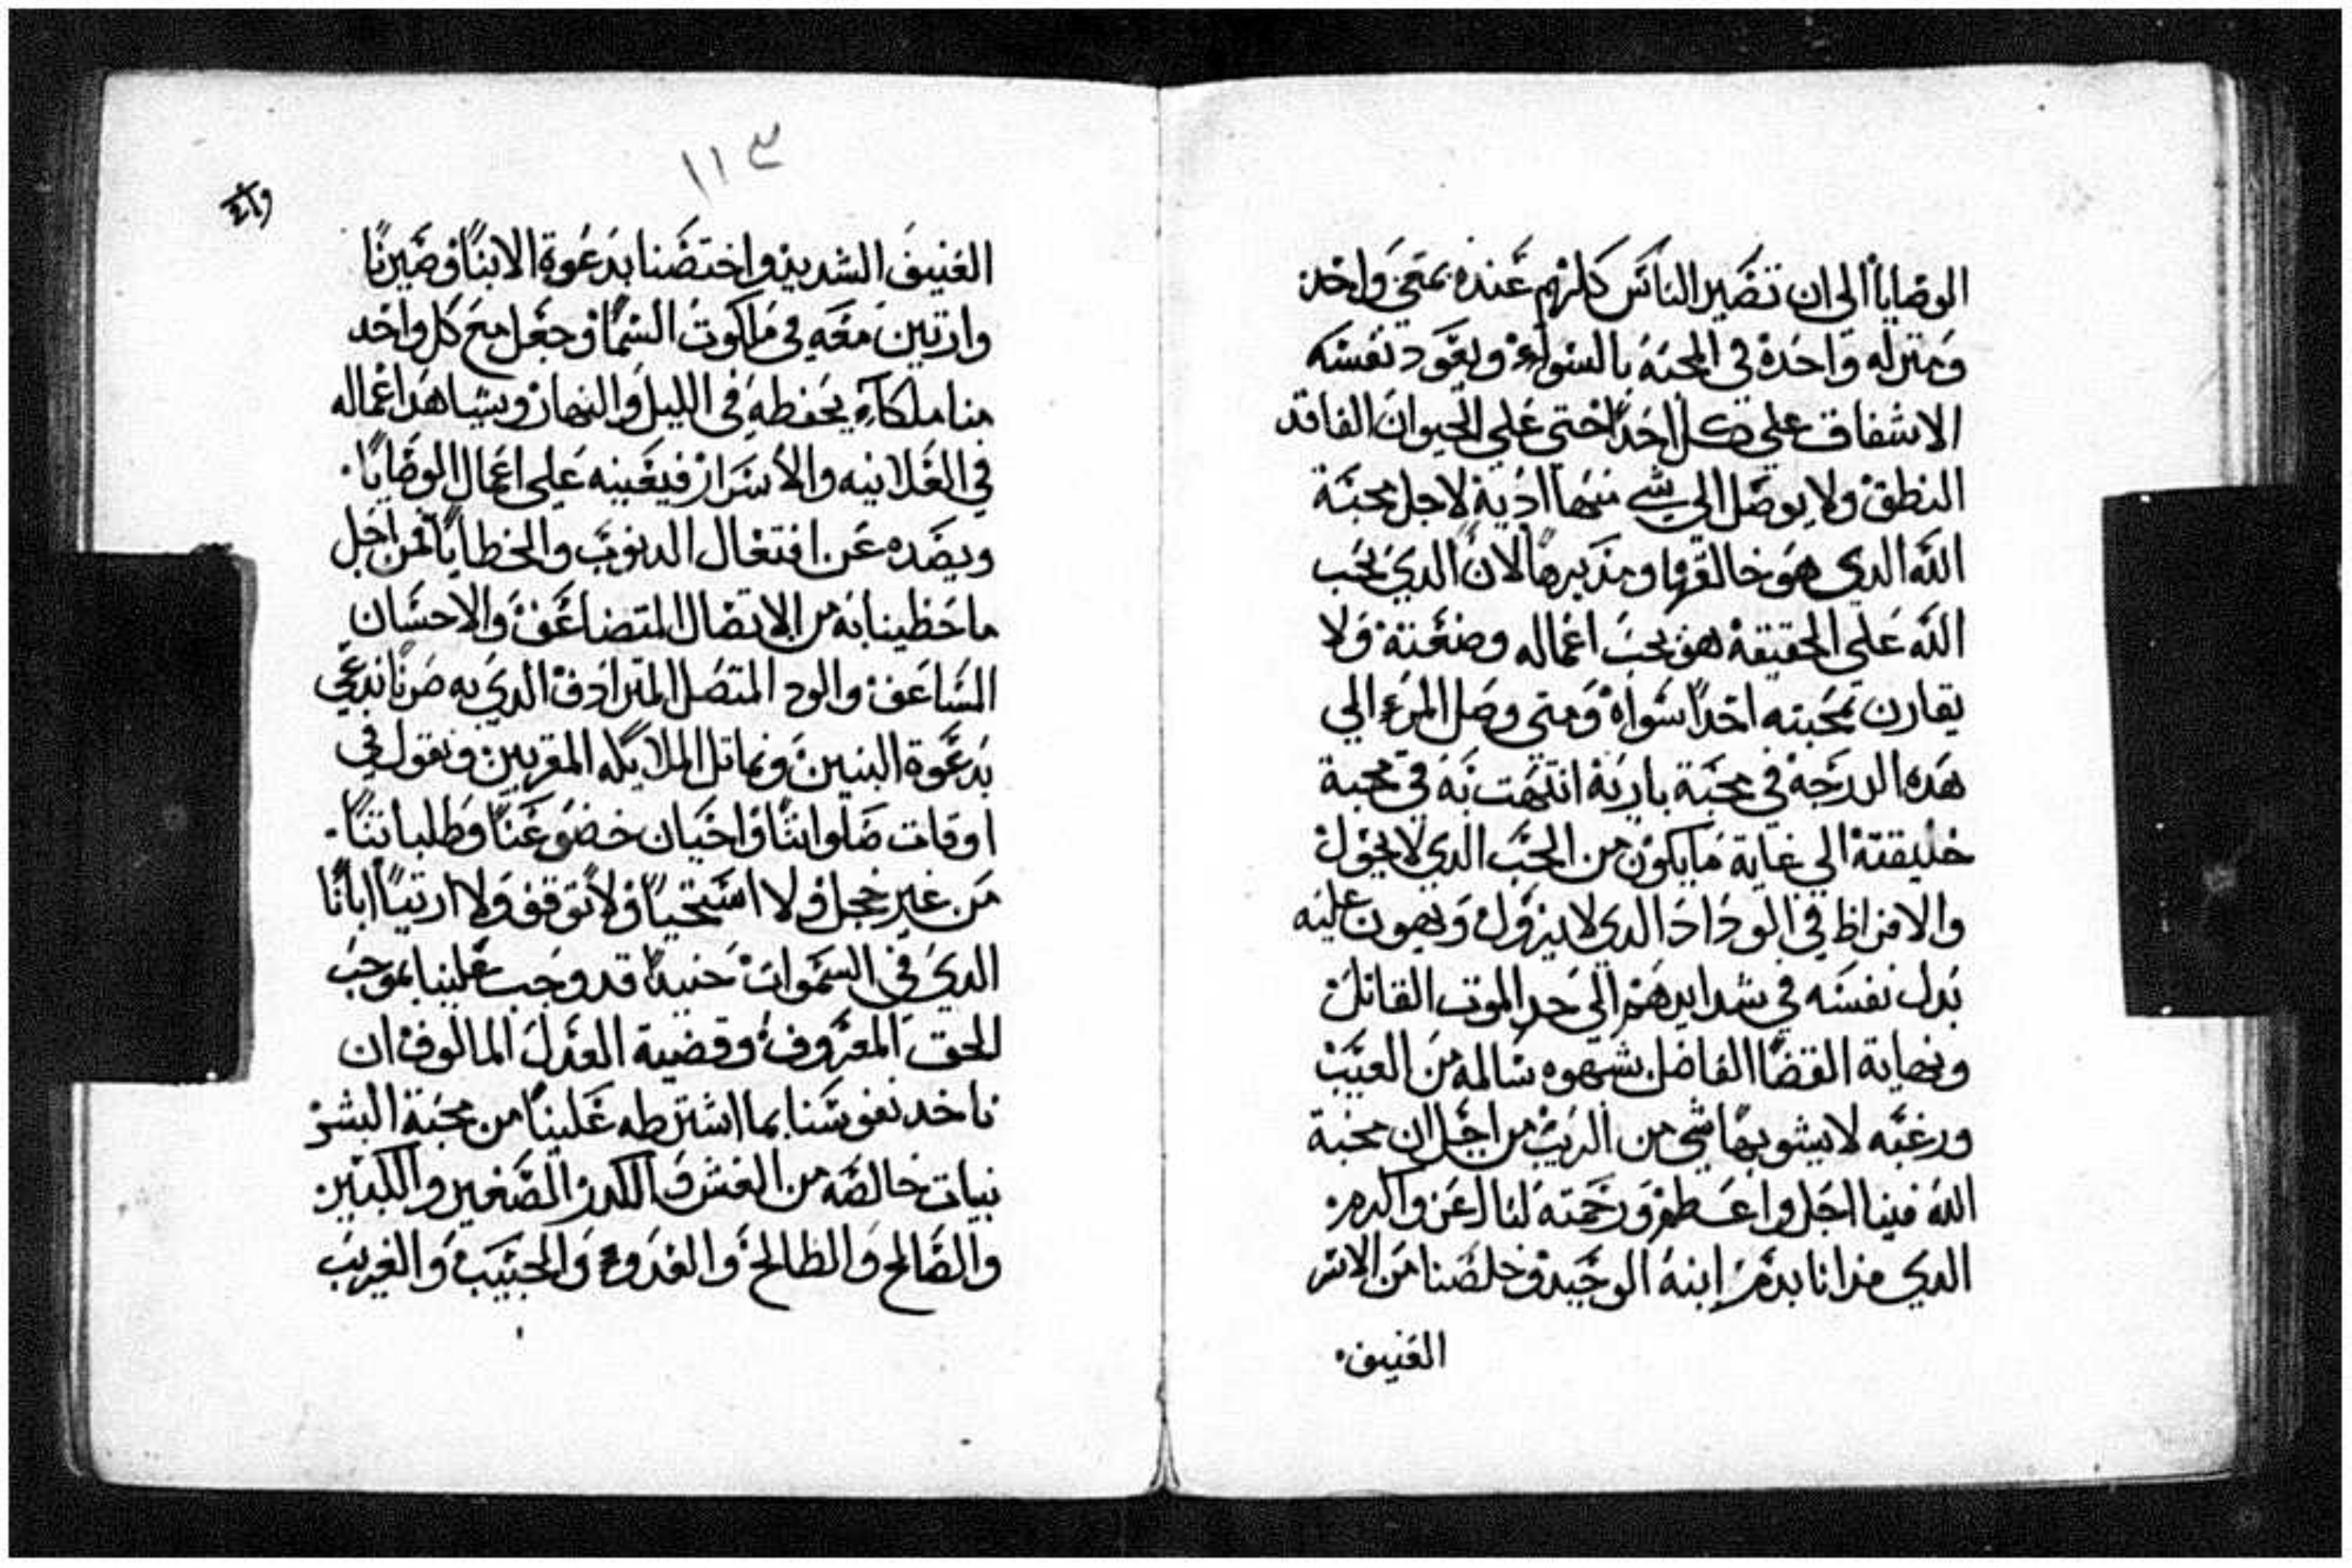 الوصايا الي ان تصير الناس كلهم عنده بمعني واحد
ومنزله واحدة في المحبة بالسواء ويعود نفسه
الاشفاق علي كل احد احتي علي الحيوان الفاقد
النطق ولا يوصل الي شي منها ادية لاجل محبة
الله الدي هو خالقها ومدبرها لان الدي يحب
الله علي الحقيقة هو يحب اعماله وصنعتة ولا
يقارن بمحبته احدا سواه ومتي وصل المرء الي
هده الدرجة في محبة باريه انتهت به في محبة
خليقتة الي غاية مايكون من الحب الدي لا يحول
والافراط في الوداد الدي لا يزول ويهون عليه
بدل نفسه في شدايدهم الي حد الموت القاتل
ونهاية القضا الفاضل بشهوه سالمه من العيب
ورغبه لا يشوبها شي من الريب من اجل ان محبة
الله فينا اجل واعظم ورحمته لنا اعز واكرم
الدي فدانا بدم ابنه الوحيد وخلصنا من الاسر
العنيف
١١٣
العنيف الشديد واختصنا بدعوة الابنا وصيرنا
وارتين معه في ملكوت السما وجعل مع كل واحد
منا ملكا يحفطه في الليل والنهار ويشاهد اعماله
في العلانيه والاسرار فيعينه علي اعمال الوصايا
ويصده عن افتعال الدنوب والخطايا فمن اجل
ما حظينا به من الاتصال المتضاعف والاحسان
الساعف والود المتصل المترادف الدي به صرنا ندعي
بدعوة البنين ونماتل الملايكه المقربين ونقول في
اوقات صلواتنا واحيان خضوعنا وطلباتنا
من غير خجل ولا استحيا ولا توقف ولا ارتيا ابانا
الدي في السموات حنيدا قد وجب علينا بموجب
الحق المعروف وقضية العدل المالوف ان
ناخد نفوسنا بما اشترطه علينا من محبة البشر
نيات خالصه من الغش والكدر الصغير والكبير
والصالح والطالح والعدو والحبيب والغريب